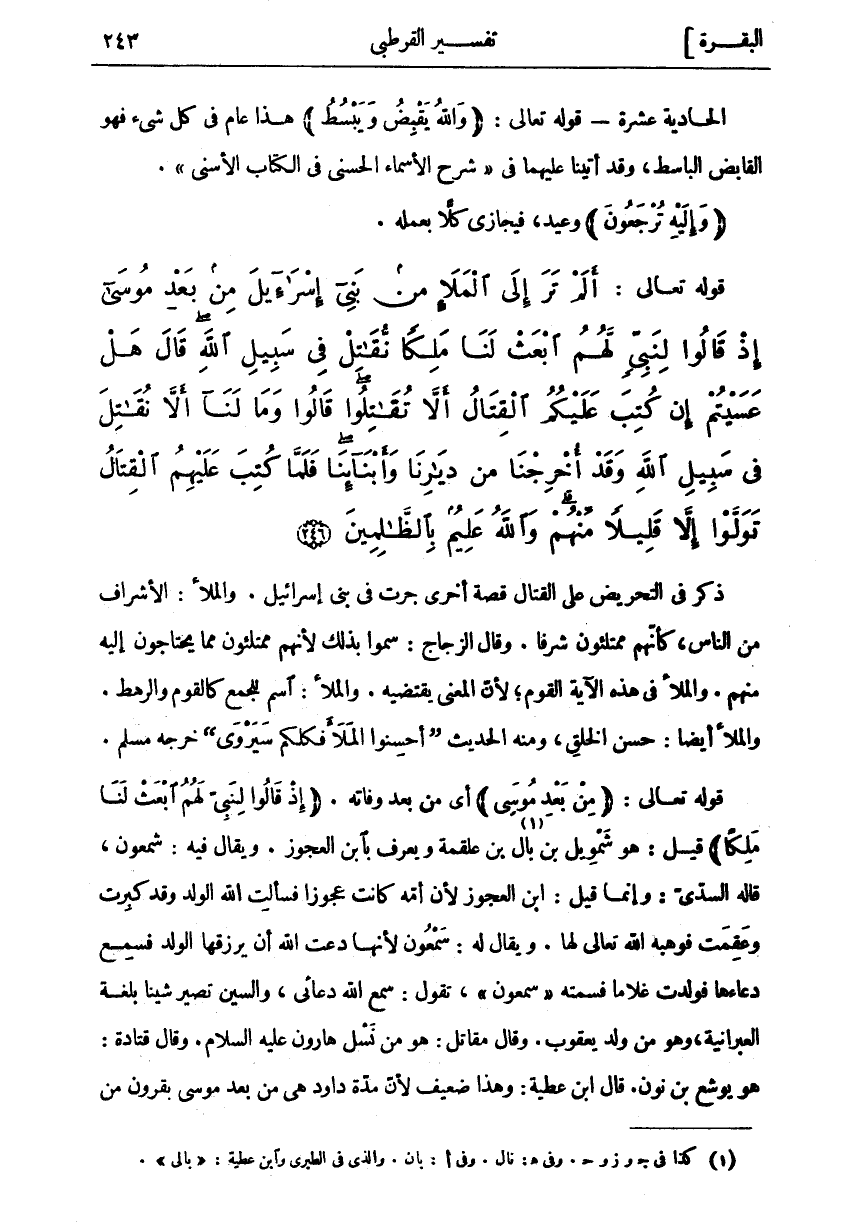 البقـــرة ]
تفســـير القرطبى
٢٤٣
الحـادية عشرة — قوله تعالى : ﴿ وَاللهُ يَقْبِضُ وَيَبْسُطُ ﴾ هـذا عام فى كل شىء فهو
القابض الباسط، وقد أتينا عليهما فى « شرح الأسماء الحسنى فى الكتاب الأسنى » .
﴿ وَإِلَيْهِ تُرْجَعُونَ ﴾ وعيد، فيجازى كلًّا بعمله .
قوله تعـالى : أَلَمْ تَرَ إِلَى ٱلْمَلَإِ مِنۢ بَنِىٓ إِسْرَٰٓءِيلَ مِنۢ بَعْدِ مُوسَىٰٓ
إِذْ قَالُوا لِنَبِىٍّ لَّهُـمُ ٱبْعَثْ لَنَـا مَلِـكًا نُّقَـٰتِلْ فِى سَبِيلِ ٱللَّهِ ۖ قَالَ هَـلْ
عَسَيْتُمْ إِن كُتِبَ عَلَيْكُمُ ٱلْقِتَالُ أَلَّا تُقَـٰتِلُوا ۖ قَالُوا وَمَا لَنَـآ أَلَّا نُقَـٰتِلَ
فِى سَبِيلِ ٱللَّهِ وَقَدْ أُخْرِجْنَا مِن دِيَـٰرِنَا وَأَبْنَآئِنَا ۖ فَلَمَّا كُتِبَ عَلَيْهِمُ ٱلْقِتَالُ
تَوَلَّوْا إِلَّا قَلِيـلًا مِّنْهُمْ ۗ وَٱللَّهُ عَلِيمٌۢ بِٱلظَّـٰلِمِينَ ﴿٢٤٦﴾
ذكر فى التحريض على القتال قصة أخرى جرت فى بنى إسرائيل . والملأ : الأشراف
من الناس، كأنّهم ممتلئون شرفا . وقال الزجاج : سموا بذلك لأنهم ممتلئون مما يحتاجون إليه
منهم . والملأ فى هذه الآية القوم؛ لأنّ المعنى يقتضيه . والملأ : ٱسم للجمع كالقوم والرهط .
والملأ أيضا : حسن الخلق، ومنه الحديث ”أحسِنوا المَلَأ فكلكم سَيَرْوَى“ خرجه مسلم .
قوله تعـالى : ﴿ مِنْ بَعْدِ مُوسَى ﴾ أى من بعد وفاته . ﴿ إِذْ قَالُوا لِنَبِىٍّ لَهُمُ ٱبْعَثْ لَنَـا
مَلِكًا ﴾ قيـل : هو شَمْوِيل بن بال(١) بن علقمة ويعرف بٱبن العجوز . ويقال فيه : شمعون ،
قاله السدّى : وإنمـا قيل : ابن العجوز لأن أمّه كانت عجوزا فسألتِ الله الولد وقد كبِرت
وعَقِمَت فوهبه الله تعالى لها . ويقال له : سَمْعُون لأنهـا دعت الله أن يرزقها الولد فسمِـع
دعاءها فولدت غلاما فسمته « سمعون » ، تقول : سمع الله دعائى ، والسين تصير شينا بلغـة
العبرانية، وهو من ولد يعقوب. وقال مقاتل : هو من نَسْل هارون عليه السلام. وقال قتادة :
هو يوشع بن نون. قال ابن عطية : وهذا ضعيف لأنّ مدّة داود هى من بعد موسى بقرون من
(١) كذا فى جـ و ز و حـ . وفى هـ: نال . وفى أ : بان . والذى فى الطبرى وٱبن عطية : « بالى » .